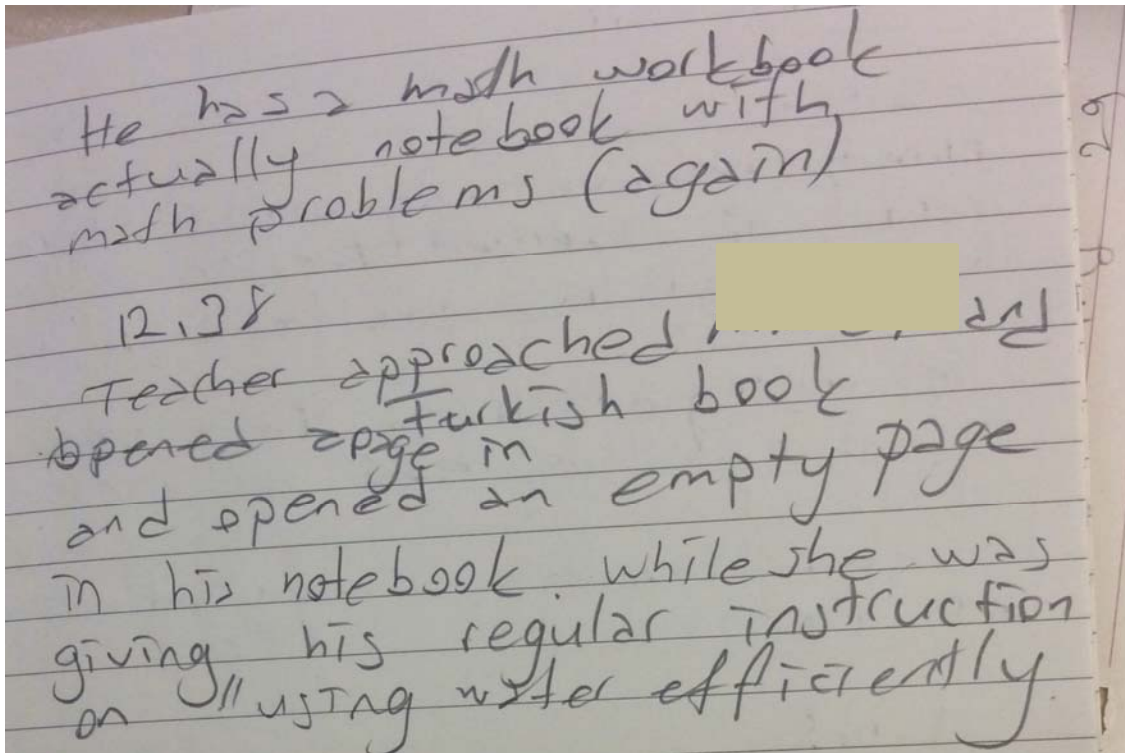 He has a math workbook
actually notebook with
math problems (again)
12.38
Teacher approached and
opened a page in turkish book
and opened an empty page
in his notebook. while she was
giving his regular instruction
on "using water efficiently.